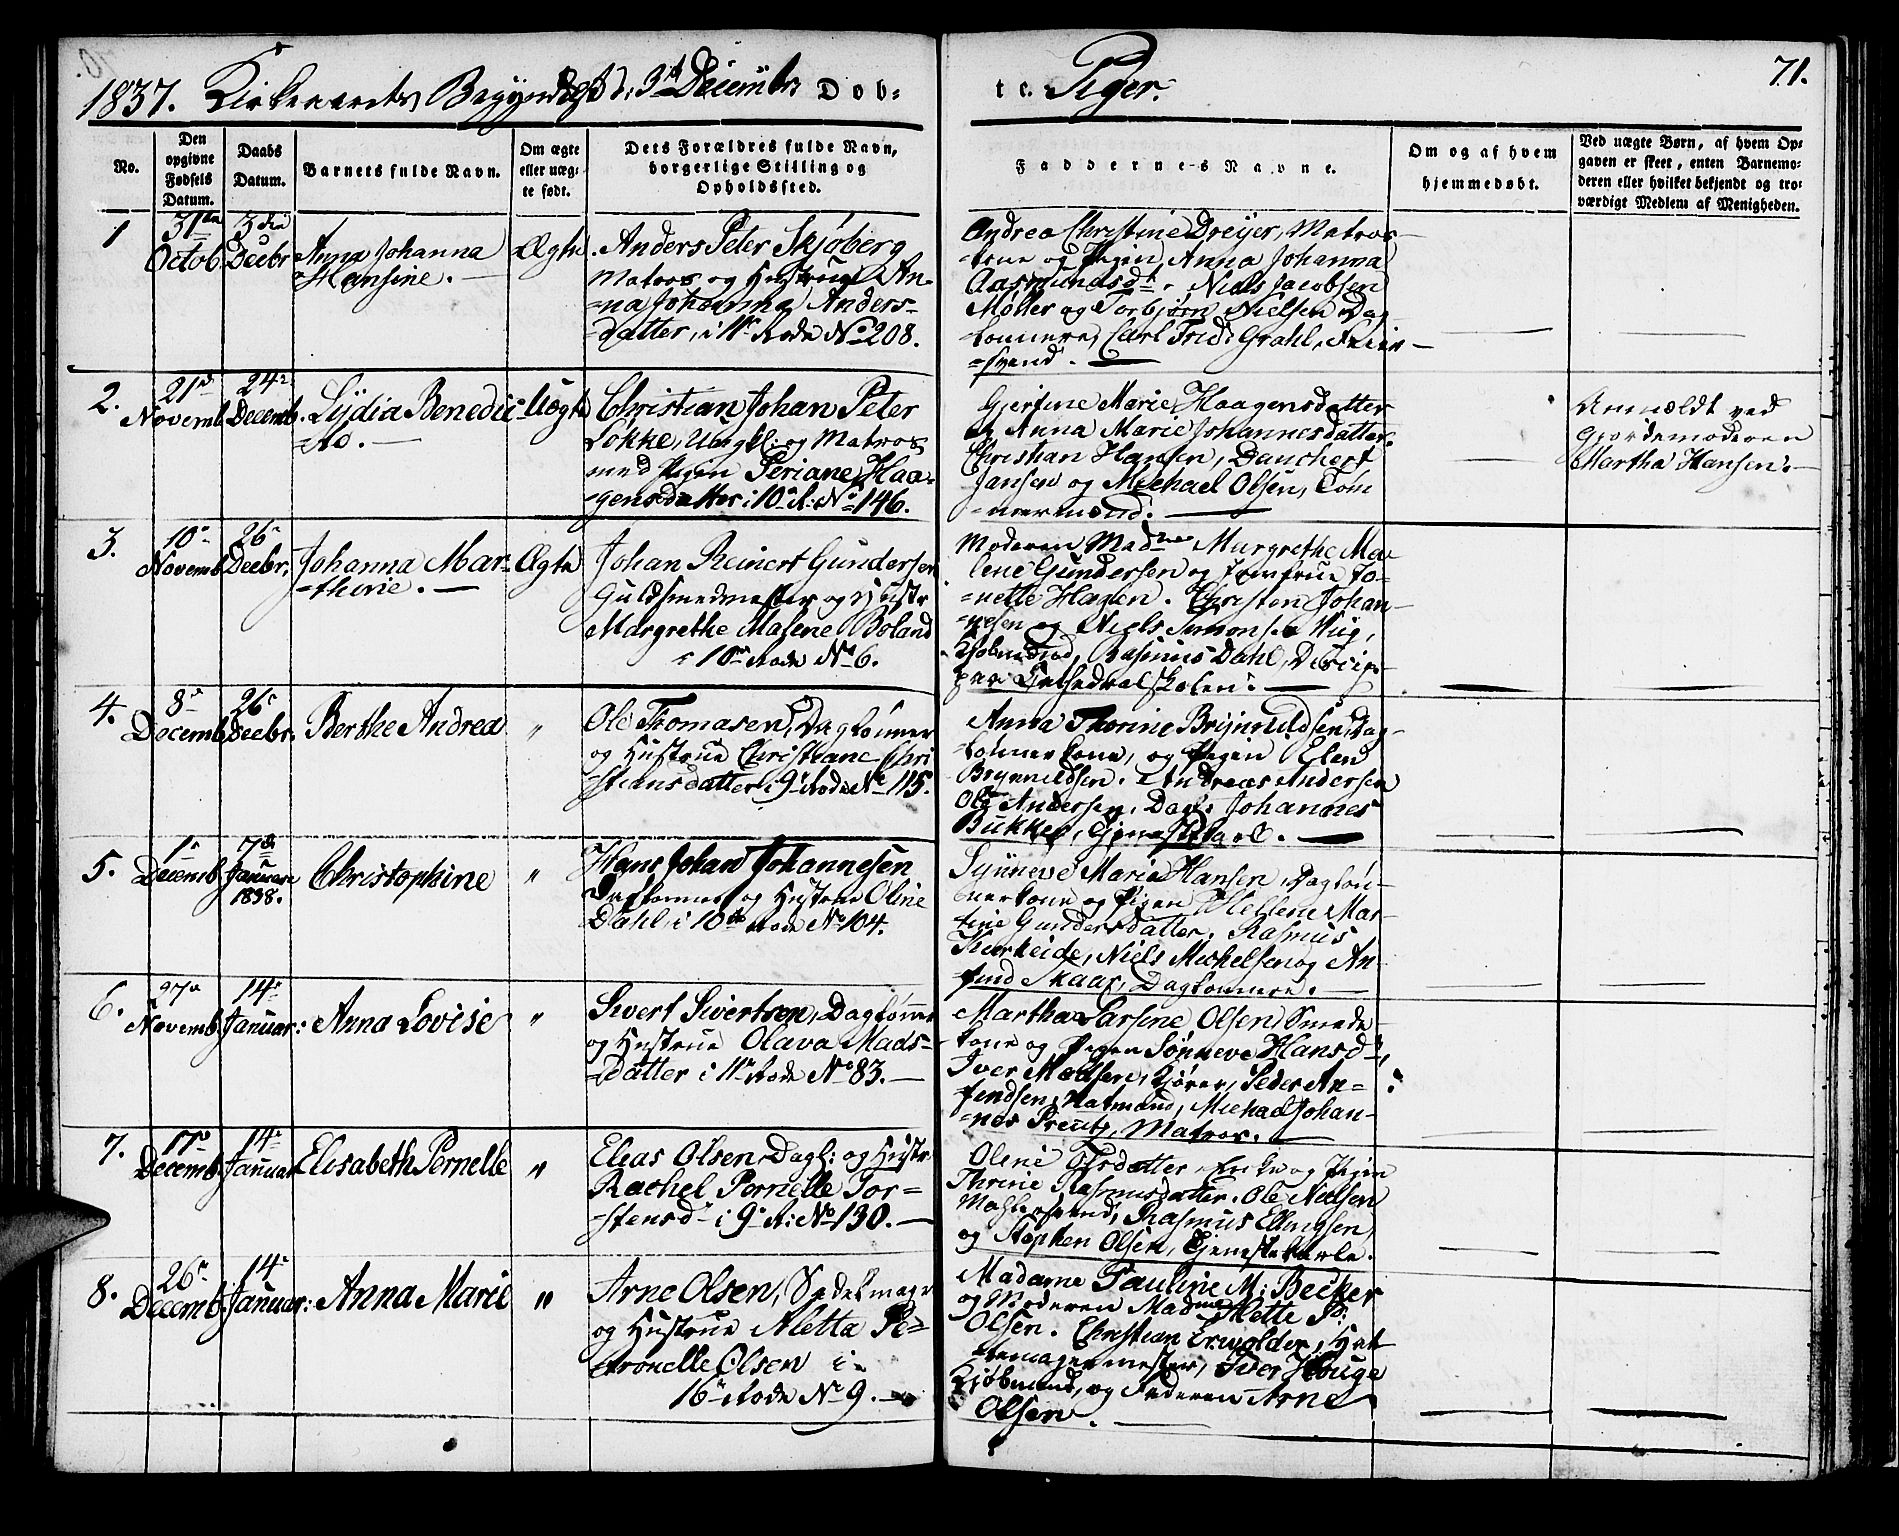 1837. Kirkeaarets Begyndelse d. 3die Decembr Døb-
te Piger.
71.
No.
Den opgivne Fødsels Datum.
Daabs Datum.
Barnets fulde Navn.
Om ægte eller uæg-
te født.
Dets Forældres fulde Navn, borgerlige Stilling og Opholdssted.
Faddernes Navne.
Om og af hvem hjemmedøbt.
Ved uægte Børn, af hvem Op-
gaven er skeet, enten Barnemo-
deren eller hvilket bekjendt og tro-
værdigt Medlem af Menigheden.
1
31te Octob.
3die Decbr
Anna Johanna
Hansine.
Ægte.
Anders Peter Skjøberg
Matros og Hustrue An-
-na Johanna Anders-
-datter, i 11te Rode No 208.
Andrea Christine Dreyer, Matros-
kone og Pigen Anna Johanna
Aasmundsdr. Niels Jacobsen
Møller og Torbjørn Nielsen Dag-
lønnere, Carl Fred: Grahl,
-svend.
2.
21de Novemb.
24de Decemb.
Lydia Benedic-
-te.
Uægte
Christian Johan Peter
Løkke, Ungkl: og Matros
med Pigen Periane Haa-
-gensdatter i 10de R: No 146.
Gjertine Marie Haagensdatter
og Anna Marie Johannesdatter.
Christian Hansen, Dauchert
Jansen og Michael Olsen, Tøm-
-mermænd.
Anmeldt ved
Gjordemoderen
Martha Hansen.
3.
10de Novemb.
26de Decbr.
Johanna Mar-
-thine.
Ægte
Johan Reinert Gundersen
Guldsmedmester og Hustr
Margrethe Malene Boland
i 10de Rode No 6.
Moderen Madme Margrethe Ma-
lene Gundersen og Jomfrue Jo-
-nette Hagen. Christen Johan-
-nesen og Niels Simonsen Wiig,
Kjøbmænd, Rasmus Dahl, Discip-
Cathedralskolen.
4.
8de Decemb.
26de Decbr.
Berthe Andrea
"
Ole Thomasen, Daglønner
og Hustrue Christiane Chri-
-stiansdatter i 9de Rode No 115.
Anna Thorine Brynhildsen, Dag-
lønnerkone, og Pigen Elen
Brynhildsen. Andreas Andersen
Ole Andersen, Dagl: Johannes
Bukken, Tjenestekarl.
5.
1te Decemb.
7de Januar
1838.
Christophine
"
Hans Johan Johannesen
Daglønner og Hustrue Oline
Dahl, i 10de Rode No 104.
Synneve Marie Hansen, Dagløn-
nerkone og Pigen Hellene Mar-
tine Gundersdatter. Rasmus
Kverheide, Niels Michelsen og An-
find Skaar, Daglønnere.
6.
27de Novemb.
14de Januar:
Anna Lovise
"
Sivert Sivertsen, Daglønner
og Hustrue Olava Mads-
-datter i 11te Rode No 83.
Martha Larsine Olsen Smede-
kone og Pigen Sønneve Hansdr,
Iver Madsen, Kjører, Peder An-
-fendsen, Natmand, Michael Johan-
-nes Preutz, Matros.
7.
17de Decemb.
14de Januar
Elisabeth Pernelle
"
Elias Olsen, Dagl: og Hustr.
Rachel Pernelle Tor-
-stensdr i 9de R: No 130.
Oline Olsdatter, Enke og Pigen
Thrine Rasmusdatter. Ole Nielsen
Rasmus Ellingsen
og Stephen Olsen, Tjenestekarle.
8.
26de Decemb.
14de Januar:
Anna Marie
"
Arne Olsen, Sadelmager
og Hustrue Metta Pe-
-tronelle Olsen i
16de Rode No 9.
Madame Pauline M: Becker
og Moderen Madme Mette P:
Olsen. Christian Erwolder, Hat-
-temagermester, Iver Houge
Kjøbmand, og Faderen Arne
Olsen.